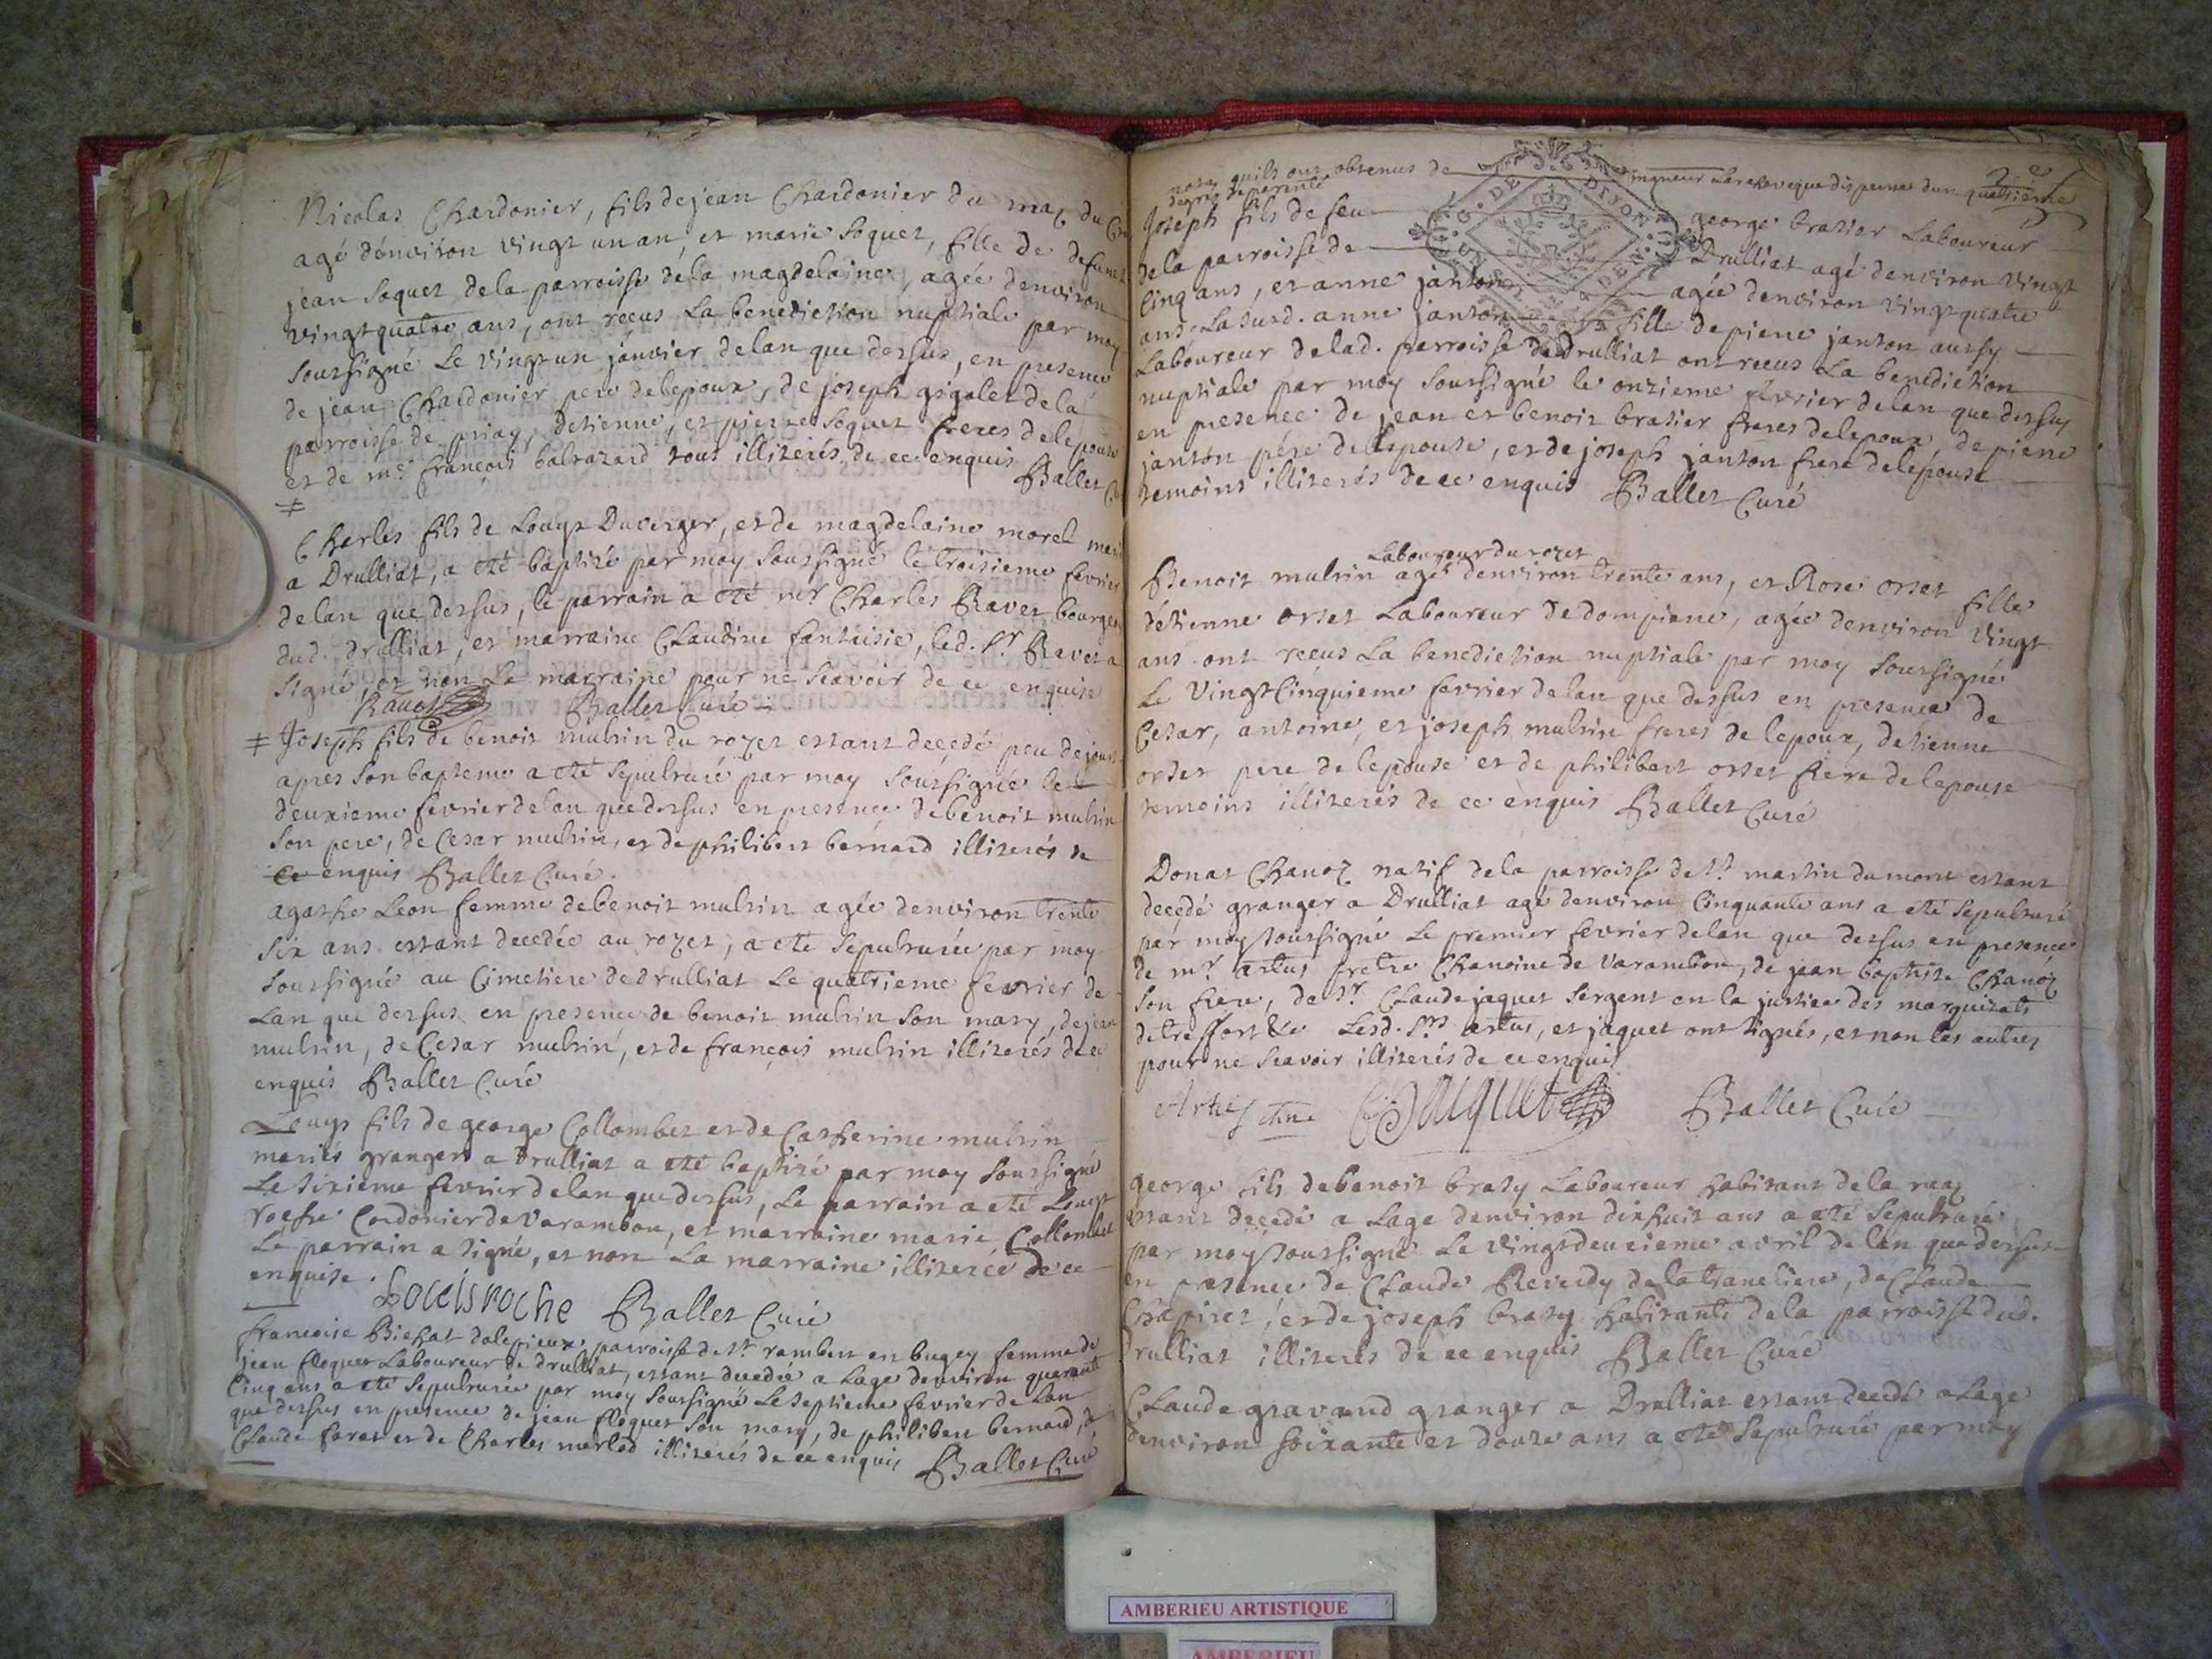 Nicolas Chardonier, fils de jean Chardonier du maz du
agé d'environ vingt un an, et marie Soquet, fille de defunct
jean Soquet de la parroisse de la magdelaine, agée denviron
vingt quatre ans, ont recus La benediction nuptiale par moy
soussigné Le vingt un janvier delan que dessus, en presence
de jean Chardonier pere delepoux, de joseph gigolet dela
parroisse de priay, detienne, et pierre Soquet freres delepouse
et de me. françois baltazard tous illiterés de ce enquis Ballet
Charles fils de Louys Duverger, et de magdelaine morel
a Drulliat, a eté baptizé par moy soussigné le troisieme fevrier
delan que dessus, le parrain a eté mr. Charles Ravet bourgeois
dud. drulliat, et marraine Claudine fantaisie, led. sr. Ravet a
signé, et non Le marraine pour ne scavoir de ce enquise
Ravet Ballet Curé
Joseph fils de benoit mulrin du rozet estant decedé peu de jours
apres son bapteme a eté sepulturé par moy soussigné le
deuxieme fevrier delan que dessus en presence de benoit mulrin
son pere, de Cesar mulrin, et de philibert bernard illiterés de
ce enquis Ballet Curé.
agathe Leon femme de benoit mulrin agée denviron trente
six ans estant decedée au rozet, a eté sepulturée par moy
soussigné au Cimetiere de drulliat Le quatrieme fevrier de
Lan que dessus en presence de benoit mulrin son mary, de jean
mulrin, de Cesar mulrin, et de françois mulrin illiterés de ce
enquis Ballet Curé
Louys fils de george Collombet et de Catherine mulrin
mariés grangers a drulliat a eté baptizé par moy soussigné
Le sixieme fevrier delan que dessus, Le parrain a eté Louys
roche Cordonier de varambon, et marraine marie Collombet
Le parrain a signé, et non La marraine illiterée de ce
enquise. Louis roche Ballet Curé
francoise Bichat parroisse de st. rambert en bugey femme de
jean floquet Laboureur de drulliat, estant decedée a Lage denviron quarante
Cinq ans a eté sepulturée par moy soussigné Le septieme fevrier de Lan
que dessus en presence de jean floquet son mary, de philibert bernard, de
Claude faret et de Charles merlod illiterés de ce enquis Ballet Curé
nota quils ont obtenus de Larcheveque dispense dun quatrieme
degré de parenté
Joseph fils de feu george brasier Laboureur
dela parroisse de Drulliat agé denviron vingt
Cinq ans, et anne janton agée denviron vingt quatre
ans Lasusd. anne janton fille de piene janton aussy
Laboureur delad. parroisse de drulliat ont recus La benediction
nuptiale par moy soussigné le onzieme fevrier delan que dessus
en presence de jean et benoit brasier freres delepoux de piene
janton pére de Lepouse, et de joseph janton frere delépouse
temoins illiterés de ce enquis Ballet Curé
Laboureur du rozet
Benoit mulrin agé denviron trente ans, et Rose orset fille
détienne orset Laboureur de dompiene, agée denviron vingt
ans ont reçus La benediction nuptiale par moy soussigné
Le vingt Cinquieme fevrier delan que dessus en presence de
Cesar, antoine, et joseph mulrin freres de lepoux, detienne
orset pere de lepouse et de philibert orset frere de lepouse
temoins illiterés de ce enquis Ballet Curé
Donat Chanoz natif dela parroisse de st. martin du mont estant
decedé granger a Drulliat agé denviron Cinquante ans a eté sepulturé
par moy soussigné Le premier fevrier delan que dessus en presence
de mr. artus pretre Chanoine de varambon, de jean baptiste Chanoz
son frere, de sr. Claude jaquet sergent en la justice des marquisats
de treffort &c Lesd. srs artus, et jaquet ont signés, et non les autres
pour ne scavoir illiterés de ce enquis
Artus Jaquet Ballet Curé
george fils de benoit brasy Laboureur habitant de la
estant decedé a Lage denviron dixhuit ans a eté sepulturé
par moy soussigné Le vingt deuxieme avril de lan que dessus
en presence de Claude Reverdy de la traneliere, de Claude
Chapiret, et de joseph brasy habitants dela parroisse dud.
drulliat illiterés de ce enquis Ballet Curé
Claude gravand granger a Drulliat estant decedé a Lage
denviron soixante et douze ans a eté sepulturé par moy
AMBERIEU ARTISTIQUE
AMBERIEU